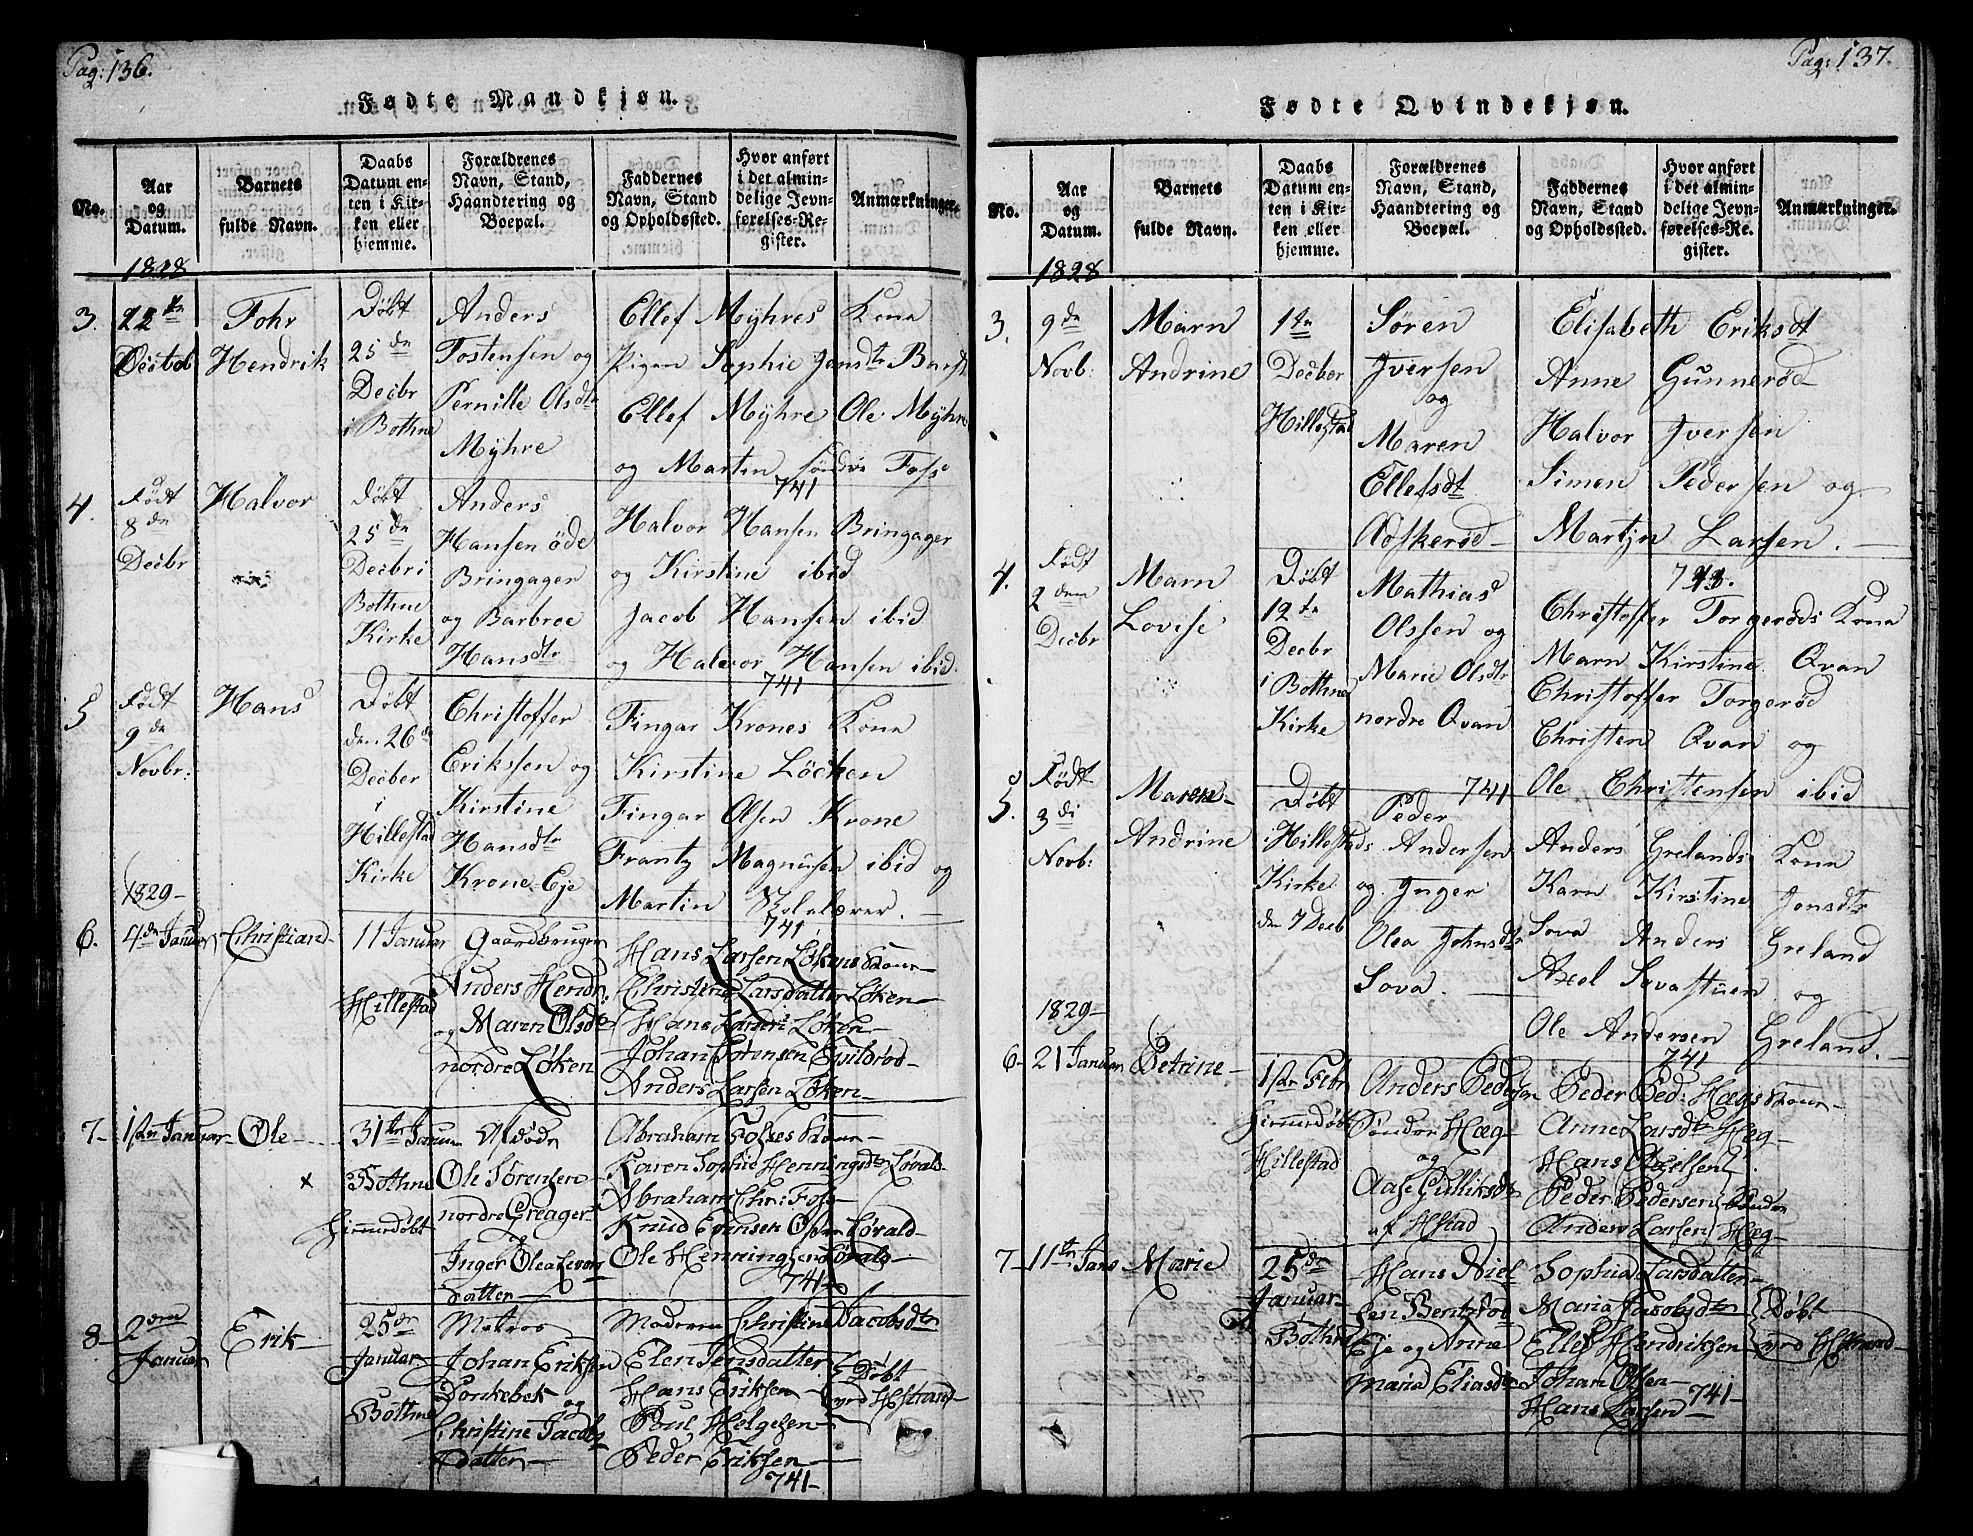 Pag: 136.
Fødte Mandkjøn.
No.
Aar
og
Datum.
Barnets
fulde Navn.
Daabs
Datum en-
ten i Kir-
ken eller
hjemme.
Forældrenes
Navn, Stand,
Haandtering og
Boepæl.
Faddernes
Navn, Stand
og Opholdssted.
Hvor anført
i det almin-
delige Jevn-
førelses-Re-
gister.
Anmærkninger.
1828
3. 22de
Octob
Hendrik
Døbt
25de
Decbr
i Bothne
Anders
Tostensen og
Pernille Olsdtr
Myhre
Ellef Myhres Kona
Pigen Sophie Jensdtr
Ellef Myhre Ole Myhre
og Martin Foss
741
4.
Født
8de
Decbr
Halvor
Døbt
25de
Decbr i
Bothne
Kirke
Anders
Hansen øde
Bringager
og Barbroe
Hansdtr
Halvor Hansen Bringager
og Kirstine ibid
Jacob Hansen ibid
og Halvor Hansen ibid.
741
5
Født
9de
Novbr:
Hans
Døbt
den 26de
Decber
i
Hillestad
Kirke
Christoffer
Erikssen og
Kirstine
Hansdtr
Krone-Eje
Fingar Krones Kona
Kirstine Löcken
Fingar Olsen Krone
Frantz Magnusen ibid og
Martin Skolelærer.
741
1829-
6. 4de Januar
Christian
11 Januar
Hillestad
Gaardbruger
Anders Hendr.
og Maren Olsdtr
nordre Løken
Hans Larsen Løkens Kone
Christine Larsdatter Løken
Hans Larsen Løken
Johan Sørensen
Anders Larsen Løken
7- 1ste Januar
Ole
x
31te Januar
Bothne
Hiemmedøbt
Ole Sørensen
nordre Greager
og
Inger Olea
datter
Abraham Fosses Kone
Karen Sophie Henningsdtr Løvald
Abraham Chr: Foss
Knud Evensen Løvald
Ole Henningsen Løvald
741
8-
2den
Januar
Erik
25de
Januar
Bothne
Matros
Johan Eriksen
og
Christine Jacobs
datter
Madame Christine Jacobsdtr
Elen Jensdatter
Hans Eriksen
Poul Helgesen
Peder Eriksen
Døbt
741
Pag: 137.
Fødte Qvindekjøn.
No.
Aar
og
Datum.
Barnets
fulde Navn.
Daabs
Datum en-
ten i Kir-
ken eller
hjemme.
Forældrenes
Navn, Stand,
Haandtering og
Boepæl.
Faddernes
Navn, Stand
og Opholdssted.
Hvor anført
i det almin-
delige Jevn-
førelses-Re-
gister.
Anmærkninger.
1828
3.
9de
Novb:
Marn
Andrine
1te
Decber
Hillestad
Søren
Iversen
og
Maren
Ellefsdt
Elisabeth Eriksdt
Anne Gunnerød
Halvor Iversen
Simen Pedersen og
Martin Larsen.
4.
Født
2den
Decbr
Marn
Lovise
Døbt
12te
Decbr
i Bothne
Kirke
Mathias
Olssen og
Marie Olsdtr
nordre Qvan
Christoffer Torgerøds Kona
Marn Kirstine Qvan
Christoffer Torgerød
Christen Qvan og
Ole Christensen ibid
741
5.
Født
3di
Novb:
Maren
Andrine
Døbt
i Hillestads
Kirke
den 7 Decb
Peder
Andersen
og Inger
Olea Johnsdtr
Sova.
Anders Grelands Kona
Karn Kirstine Jonsdtr
Sova Anders Greland
Axel Sovastuen og
Ole Andersen Greland.
741
1829-
6- 21 Januar
Petrine
1ste Febr
Hiemmedøbt
Hillestad
Anders Pedersen
Søndre Hæg
og
Aase Gulliksdtr
Peder Ped: Hægs Kone
Anne Larsdtr Hæg
Hans Olselsen
Peder Pedersen
Anders Larsen Hæg
7- 11te Jan
Marie
25de
Januar
Bothne
Hans Niel-
sen
Eje og Anne
Maria Eliasdtr
Sophia Larsdatter
Maria Jacobsdtr
Ellef Hendriksen
Johan Olsen
Hans Larsen
741
Døbt